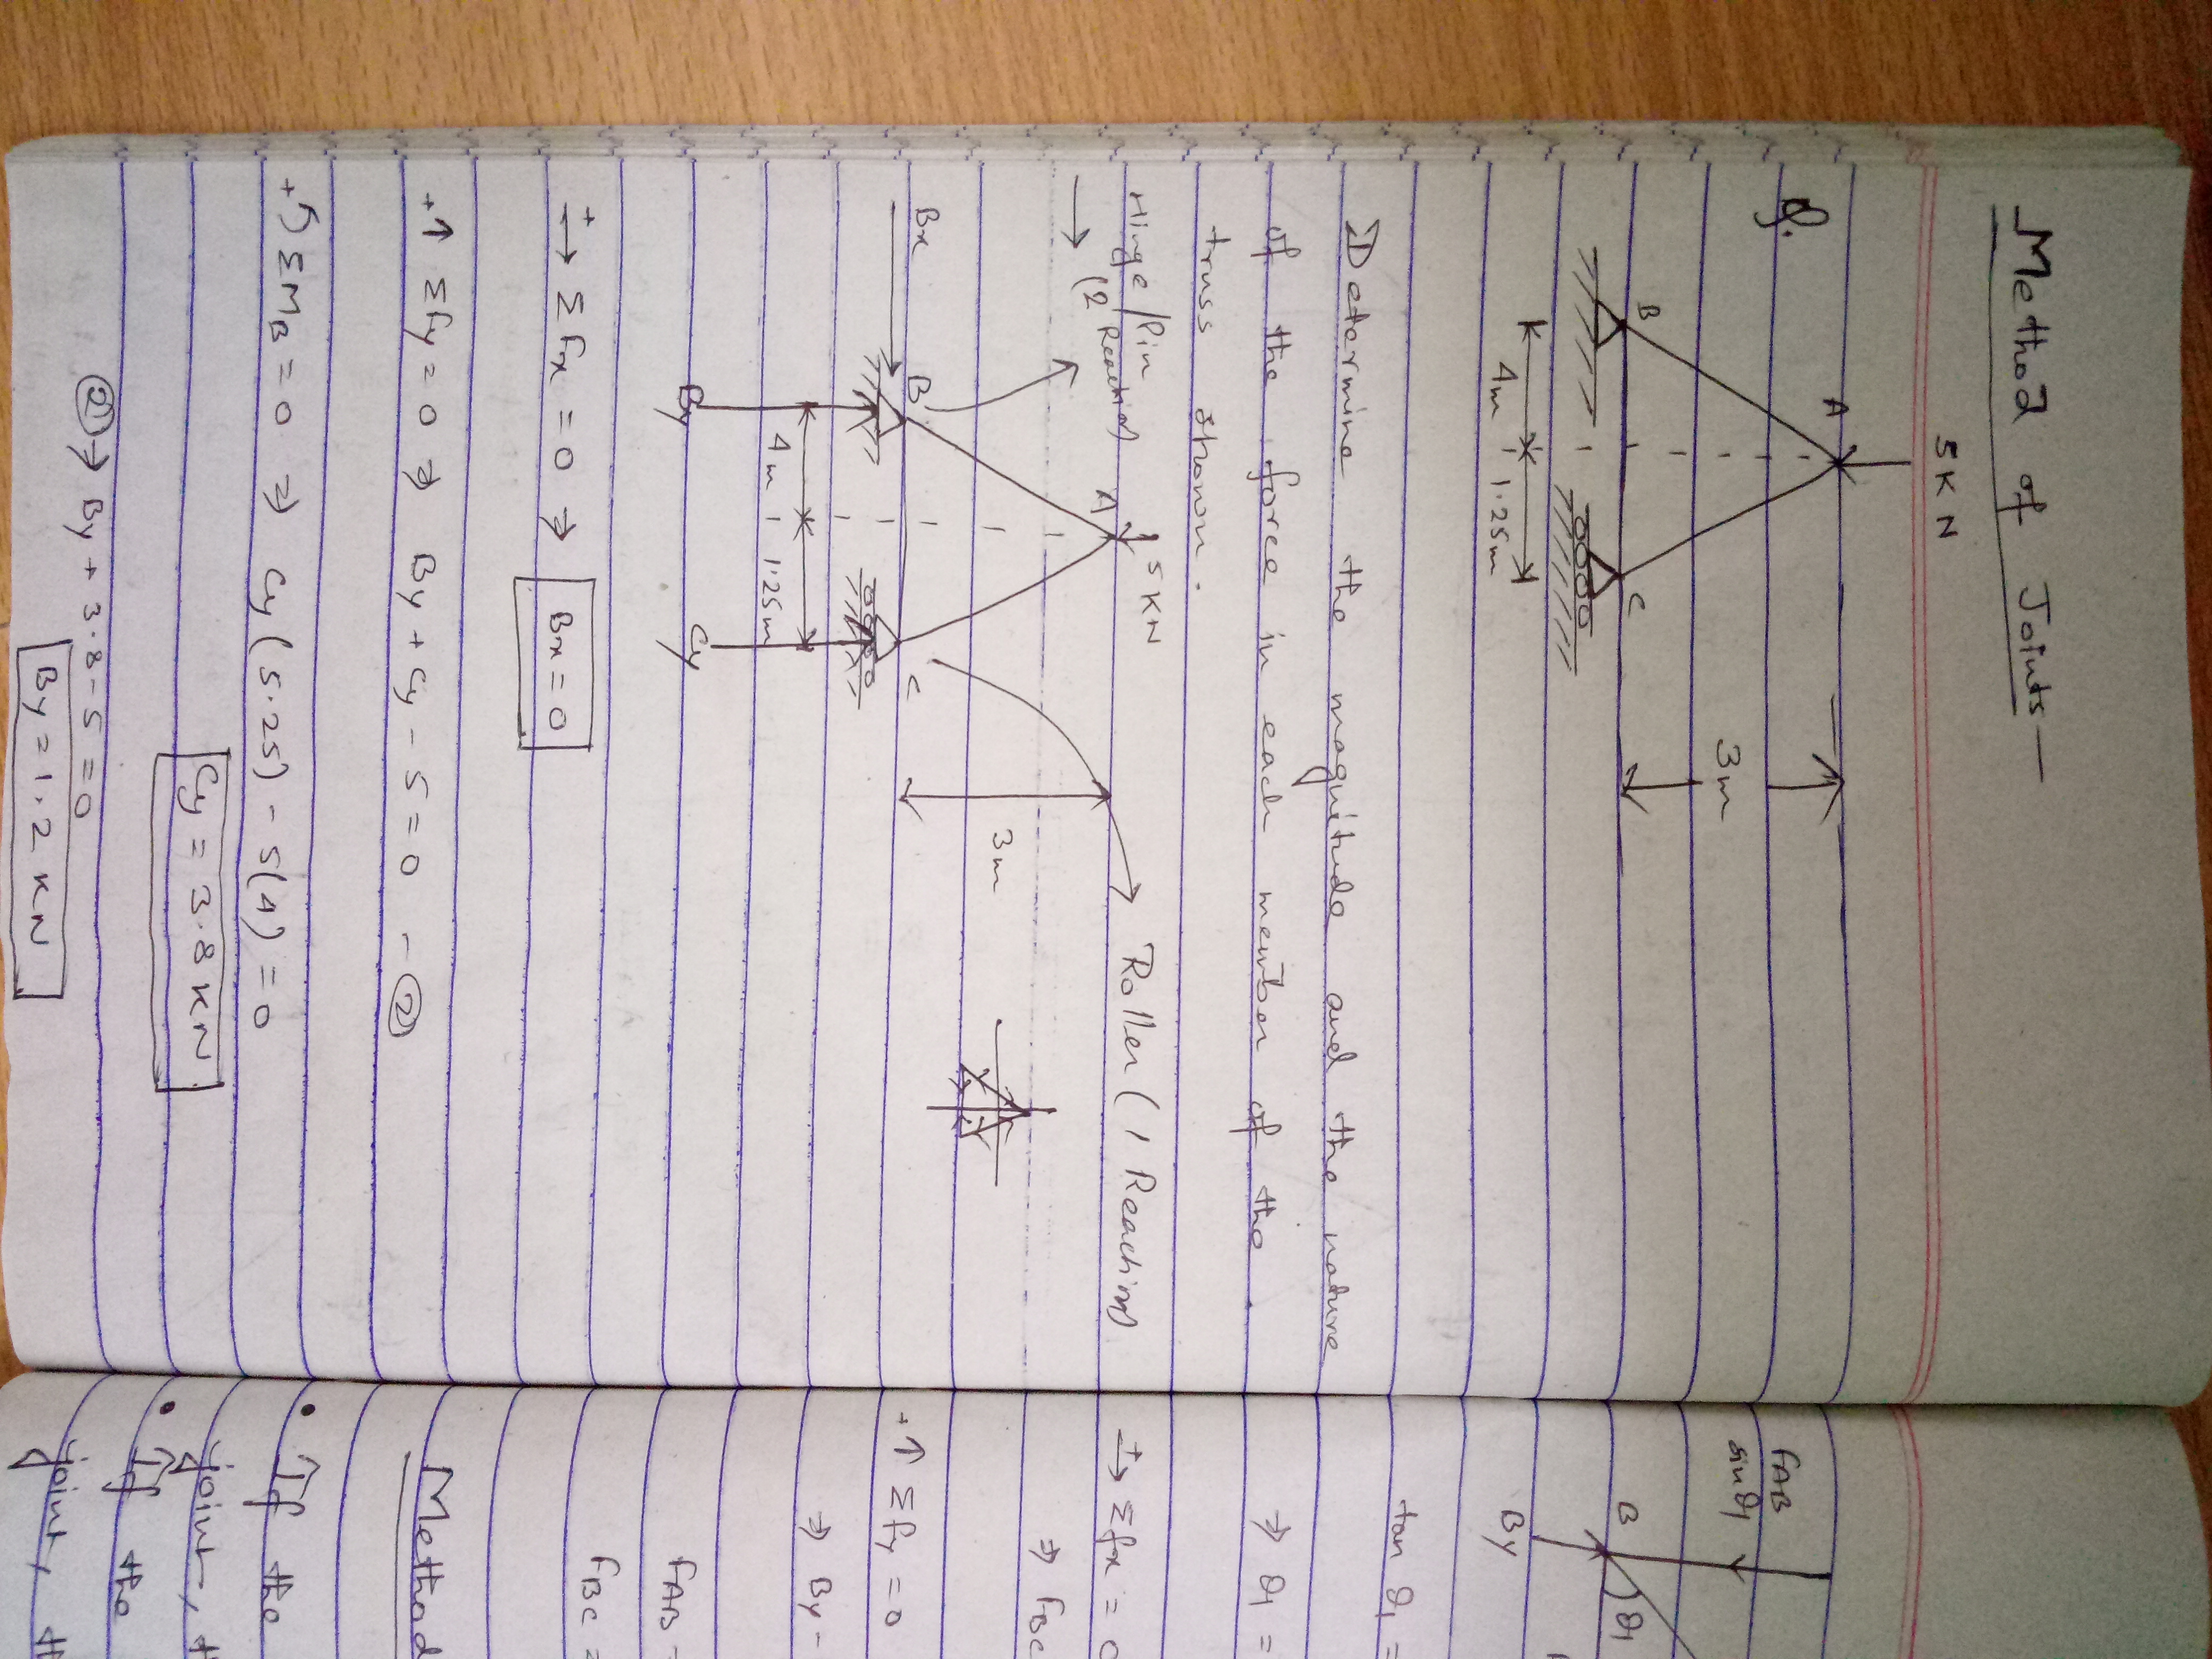 Method of Joints—
5KN
A
Q.
3m
B
C
4m 1.25m
Determine the magnitude and the nature
of the force in each member of the
truss shown.
Hinge/Pin
(2 Reaction)
5 KN
A
Roller (1 Reaction)
3m
Bx
B
C
4m 1.25m
By
Cy
+→ ΣFx = 0 ⇒ Bx = 0
+↑ Σfy = 0 ⇒ By + Cy - 5 = 0 - ②
+↺ ΣMB = 0 ⇒ Cy (5.25) - 5(4) = 0
Cy = 3.8 KN
② → By + 3.8 - 5 = 0
By = 1.2 KN
FAB
sinθ1
B
θ1
By
tan θ1 =
⇒ θ1 =
+→ Σfx = 0
⇒ FBC
+↑ Σfy = 0
⇒ By -
FAB =
FBC =
Method
• If the
joint,
• If the
joint,